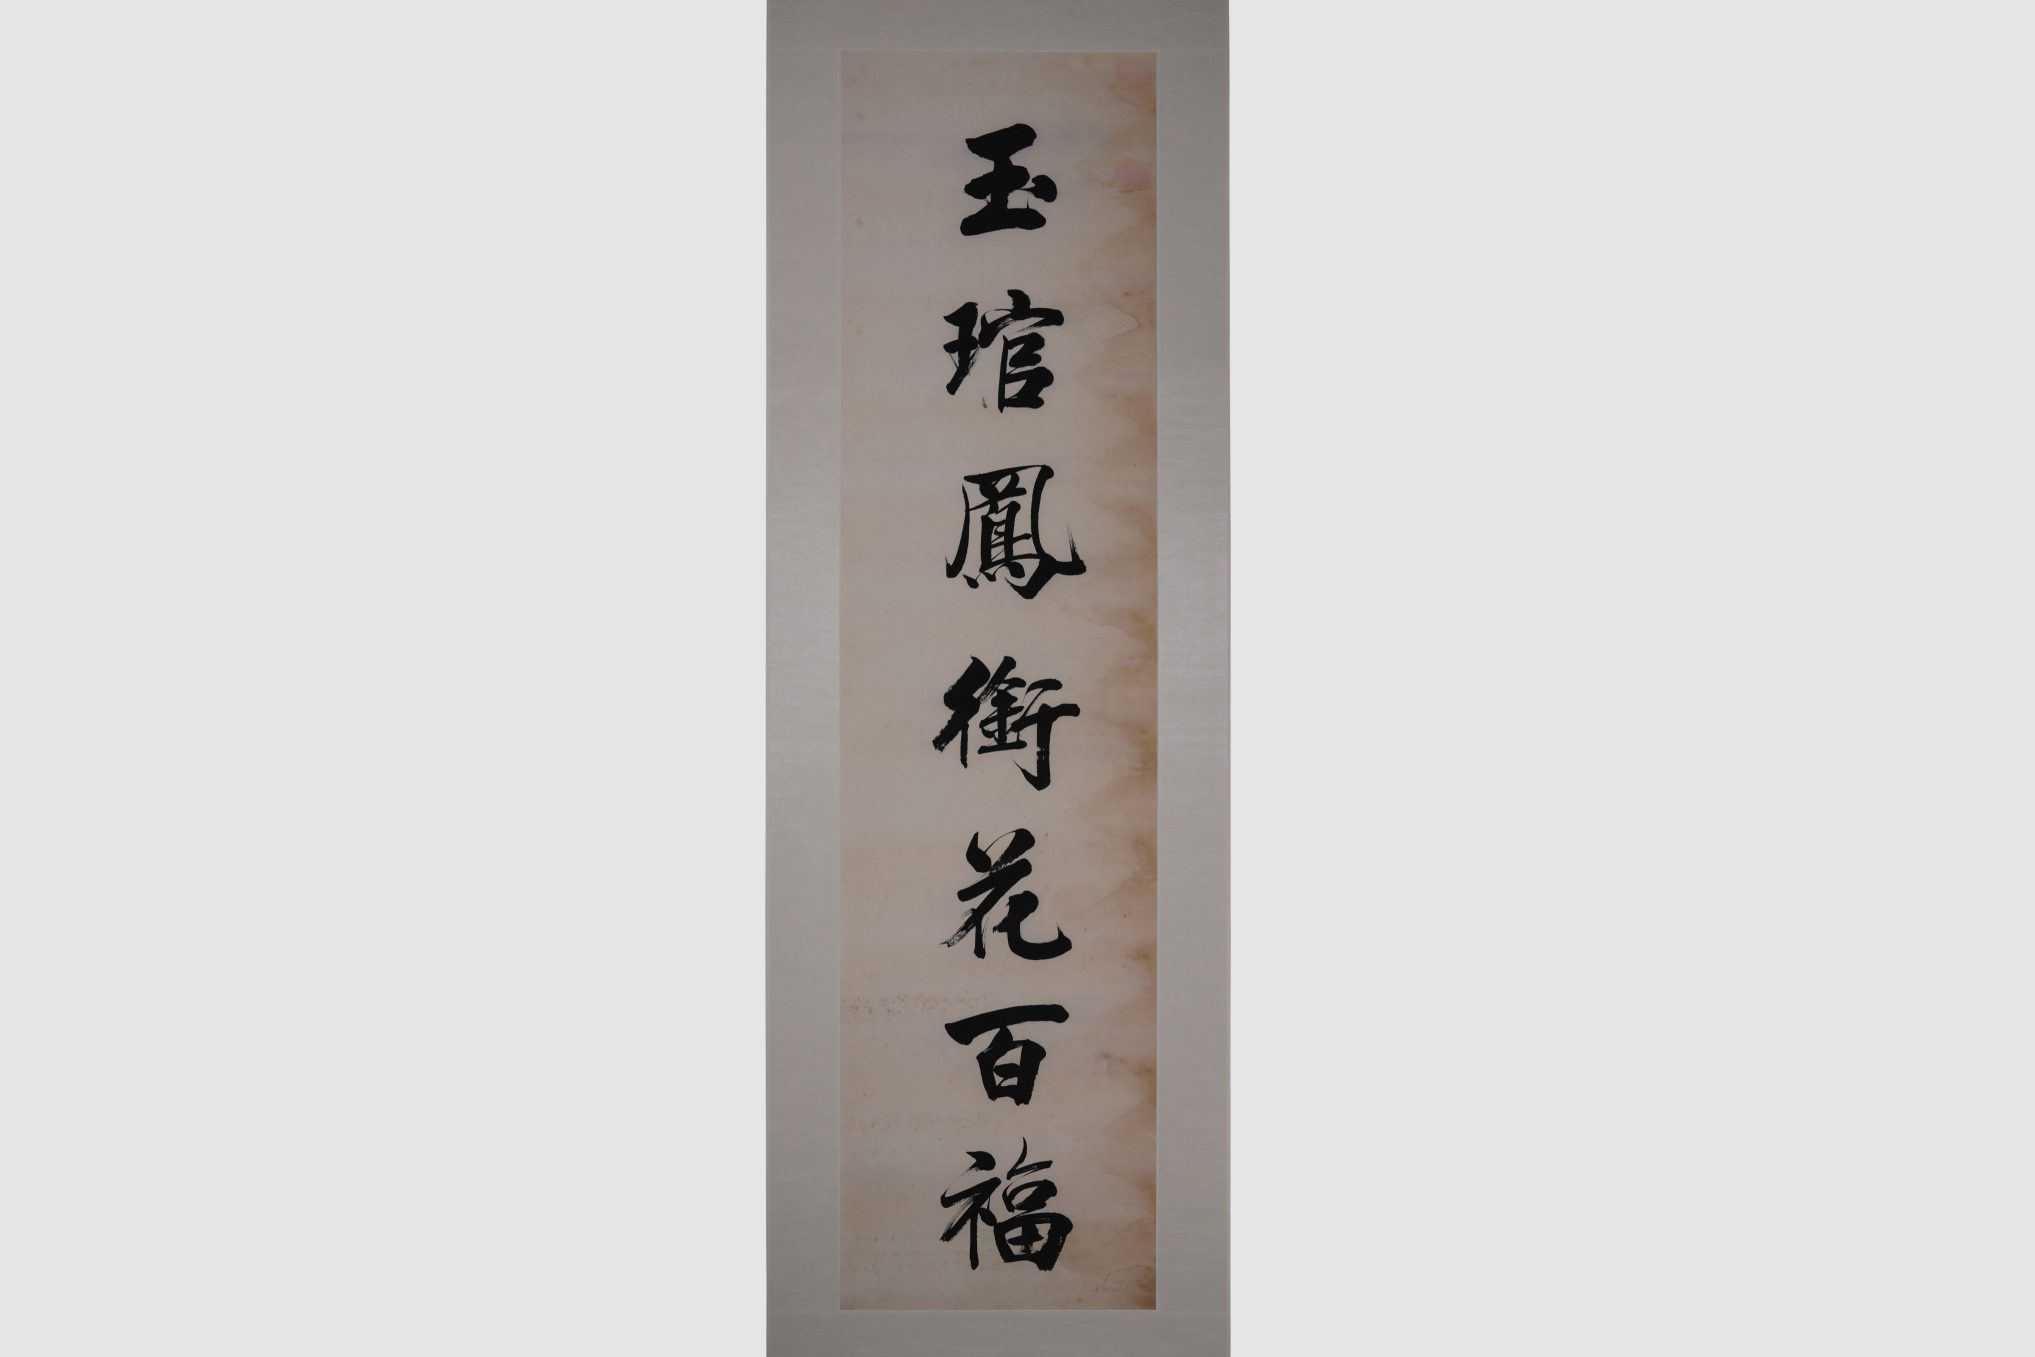 玉琯鳳銜花百福